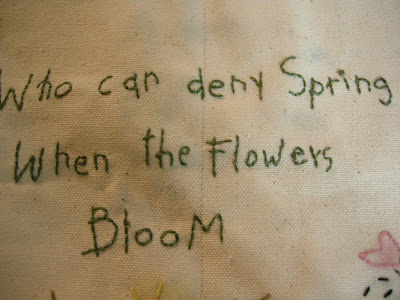 Who can deny Spring
When the Flowers
BlooM